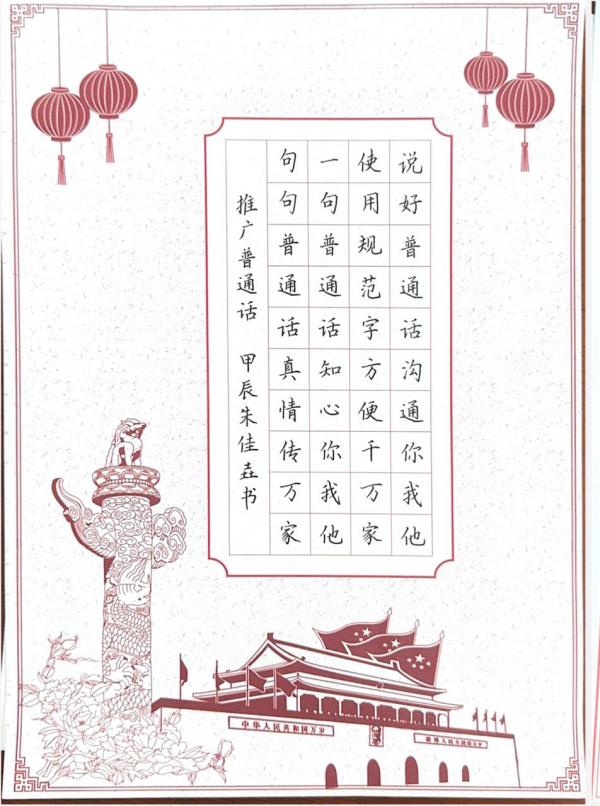 说好普通话沟通你我他
使用规范字方便千万家
一句普通话知心你我他
句句普通话真情传万家
推广普通话 甲辰朱佳垚书
中华人民共和国万岁